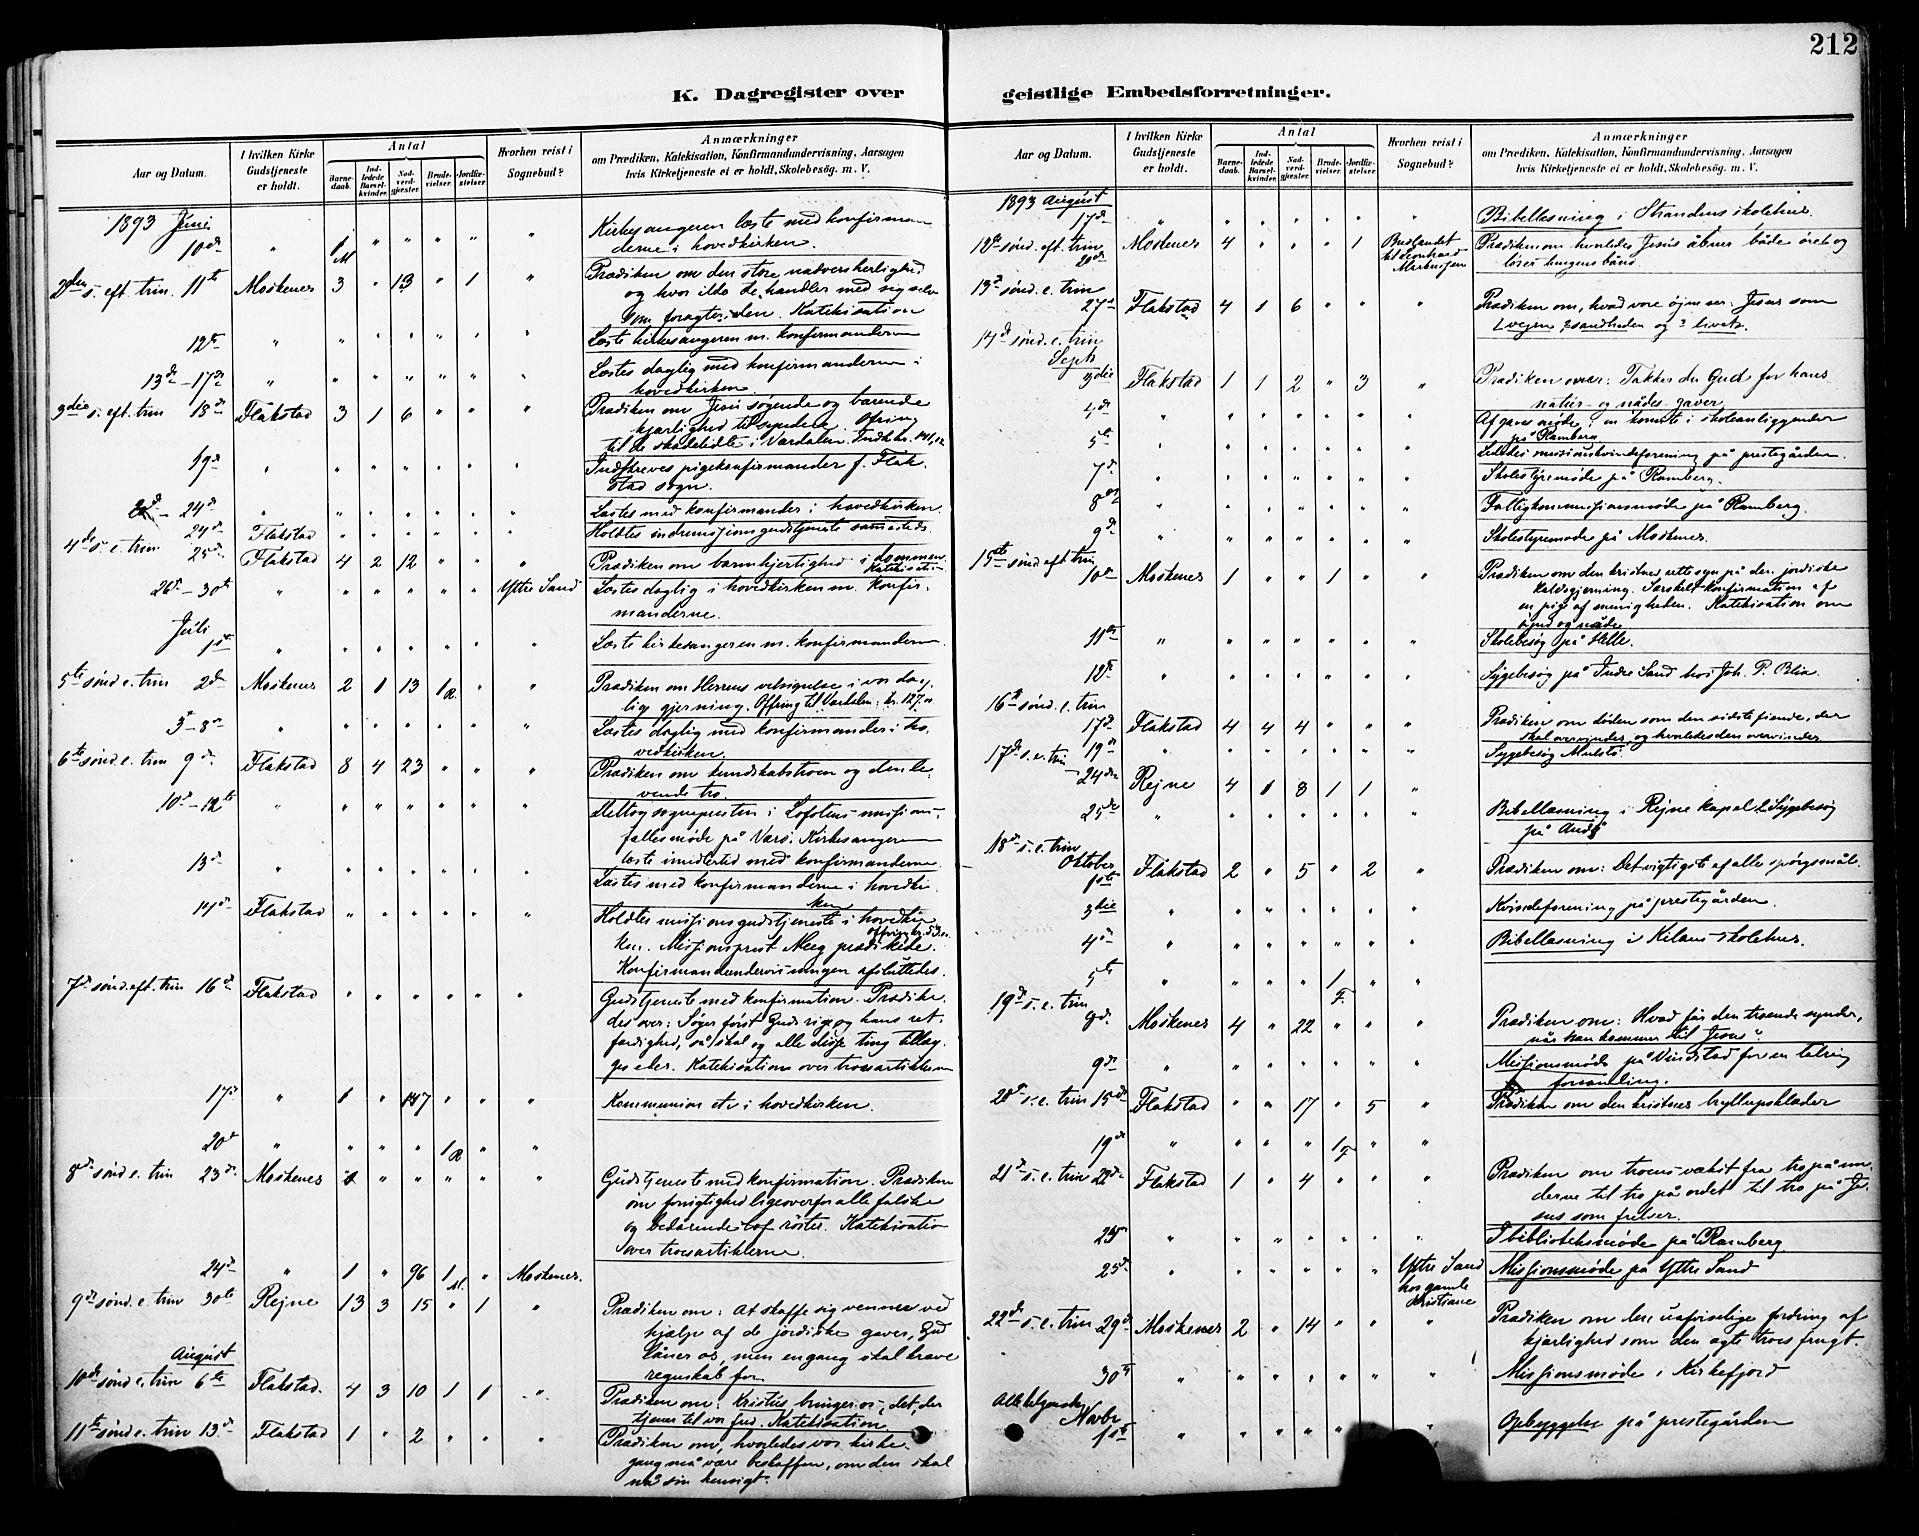 212
K. Dagregister over
Aar og Datum.
I hvilken Kirke
Gudstjeneste
er holdt.
Antal
Barne-
daab.
Ind-
ledede
Barsel-
kvinder.
Nad-
verd-
gjester
Brude-
vielser
Jordfæ-
stelser
Hvorhen reist i
Sognebud?
Anmærkninger
om Prædiken, Katekisation, Konfirmandundervisning, Aarsagen
hvis Kirketjeneste ei er holdt, Skolebesög. m. V.
1893 Juni
10de " 1 M " " " " " Kirkesangeren læste med konfirman
derne i hovedkirken.
2den s. eft. trin. 11te Moskenes 3 " 13 " 1 " Prædiken om den store nadversherlighed
og hvor ilde de handler med sig selv
som foragter den. Katekisation
12te " " " " " " " Læste kirkesangeren m. konfirmanderne
13de – 17de " " " " " " " Læstes daglig med konfirmanderne i
hovedkirken.
3die s. eft. trin 18de Flakstad 3 1 6 " " " Prædiken om Jesu søgende og bærende
kjærlighed til syndere. Ofring
til de skadelidte i Værdalen. Indk. kr.
19de " " " " " " " Indskreves pigekonfirmander f. Flak-
stad sogn.
– 24de " " " " " " " Læstes med konfirmander i hovedkirken.
24de Flakstad " " " " " Holdtes indremissionsgudstjeneste sammesteds.
4de s. e. trin 25de Flakstad 4 2 12 " " " Prædiken om barmhjertighed i dommen.
Katekisation
26de – 30te " " " " " " Yttre Sand Læstes daglig i hovedkirken m. konfir-
manderne.
Juli
1ste " " " " " " " Læste kirkesangeren m. konfirmanderne.
5te sønd. e. trin 2den Moskenes 2 1 13 1 R " " Prædiken om Herrens velsignelse i vor dag-
lige gjerning. Ofring til Værdalen: kr. 127,
3de – 8de " " " " " " " Læstes daglig med konfirmander i ho-
vedkirken.
6te sønd. e. trin 9de Flakstad 8 4 23 " " " Prædiken om kundskabstroen og den le-
vende tro.
10de – 12te " " " " " " " Deltog sognepresten i Lofotens missions-
fællesmøde på Værø. Kirkesangeren
læste imidlertid med konfirmanderne.
13de " " " " " " " Læstes med konfirmanderne i hovedkir-
ken
14de Flakstad " " " " " " Holdtes missionsgudstjeneste i hovedkir-
ken. Missionsprest Meeg prædikede.
Konfirmandundervisningen afsluttedes.
7de sønd. eft. trin 16de Flakstad " " " " " " Gudstjeneste med konfirmation. Prædike-
des over: Søger først Guds rige og hans ret-
færdighed, så skal og alle disse ting tillæg-
ges eder. Katekisation over trosartiklerne
17de " 1 " 147 " " " Kommunion etc i hovedkirken.
20de " " " " 1 R " "
8de sønd. e. trin 23de Moskenes " " " " " Gudstjeneste med konfirmation. Prædiken
om forsigtighed ligeoverfor alle falske
og bedårende lof røster. Katekisation
over trosartiklerne.
24de " 1 " 96 1 M. " Moskenes.
9de sønd. e. trin 30te Rejne 13 3 15 " 1 " Prædiken om: At skaffe sig venner ved
hjælp af de jordiske gaver, Gud
låner os, men engang skal kræve
regnskab for.
August
10de sønd. e. trin 6te Flakstad. 4 3 10 1 1 " Prædiken om: Kristus bringer os det, der
tjener til vor fred. Katekisation
11te sønd e. trin 13de Flakstad 1 " 2 " " " Prædiken om, hvorledes vor kirke-
gang må være beskaffen, om den skal
nå sin hensigt.
geistlige Embedsforretninger.
Aar og Datum.
I hvilken Kirke
Gudstjeneste
er holdt.
Antal
Barne-
daab.
Ind-
ledede
Barsel-
kvinder.
Nad-
verd-
gjester
Brude-
vielser
Jordfæ-
stelser
Hvorhen reist i
Sognebud?
Anmærkninger
om Prædiken, Katekisation, Konfirmandundervisning, Aarsagen
hvis Kirketjeneste ei er holdt, Skolebesög. m. V.
1893 August
17de " " " " " " " Bibellæsning i Strandens skolehus.
12te sønd. eft. trin 20de Moskenes 4 " " " 1 Budsendt
til Leonhard
Markussen Prædiken om hvorledes Jesus åbner både øret og
løser tungens bånd.
13de sønd. e. trin
27de Flakstad 4 1 6 " " " Prædiken om, hvad vore øjne ser: Jesus som
1 vejen 2 sandheden og 3 livet.
14de sønd. e. trin
Septr
3die Flakstad 1 1 2 " 3 " Prædiken over: Takker du Gud for hans
natur- og nådes-gaver.
4de " " " " " " " Afgaves møde i en komite i skoleanliggender
på Ramberg
5te " " " " " " " Lededes missionskvindeforening på prestegården.
7de " " " " " " " Skolestyremøde på Ramberg.
8de " " " " " " " Fattigkommissionsmøde på Ramberg.
9de " " " " " " " Skolestyremøde på Moskenes.
15de sønd. eft. trin
10de Moskenes 1 " " 1 " " Prædiken om den kristnes rette syn på den jordiske
kaldsgjerning. Særskilt konfirmation af
en pige af menigheden. Katekisation om
synd og nåde
11te " " " " " " " Skolebesøg på Helle.
12te " " " " " " " Sygebesøg på Indre Sand hos Joh. P. Blix.
16de sønd. e. trin
17de Flakstad 4 4 4 " " " Prædiken om døden som den sidste fiende, der
skal overvindes, og hvorledes den overvindes
17de s. e. trin 19de " " " " " " " Sygebesøg Mulstø.
24de Rejne 4 1 8 1 1 "
25de " " " " " " " Bibellæsning i Rejne kapel & Sygebesøg
på Andø
18de s. e. trin
Oktober
1ste Flakstad 2 " 5 " 2 " Prædiken om: Det vigtigste af alle spørgsmål.
3die " " " " " " " Kvindeforening på prestegården.
4de " " " " " " " Bibellæsning i Kilans skolehus.
5te " " " " 1 F. " "
19de s. e. trin
8de Moskenes 4 " 22 " " " Prædiken om: Hvad får den troende synder,
når han kommer til Jesus?
9de " " " " " " " Missionsmøde på Vindstad for en talrig
forsamling.
20de s. e. trin 15de Flakstad " " 17 " 5 " Prædiken om den kristnes bryllupsklæder
19de " " " " 1 F " "
21de s. e. trin 22de Flakstad 1 " 4 " " " Prædiken om troens vækst fra tro på un-
derne til tro på ordet til tro på Je-
sus som frelser.
23de " " " " " " " I biblioteksmøde på Ramberg.
25de " " " " " " Yttre Sand
hos gamle
Kristiane Missionsmøde på Yttre Sand
22de s. e. trin 29de Moskenes 2 " 14 " " " Prædiken om den uafviselige fordring af
kjærlighed som den ægte troes frugt.
30te " " " " " " " Missionsmøde i Kirkefjord
Allehelgensdag Novbr
1ste " " " " " " " Opbyggelse på prestegården